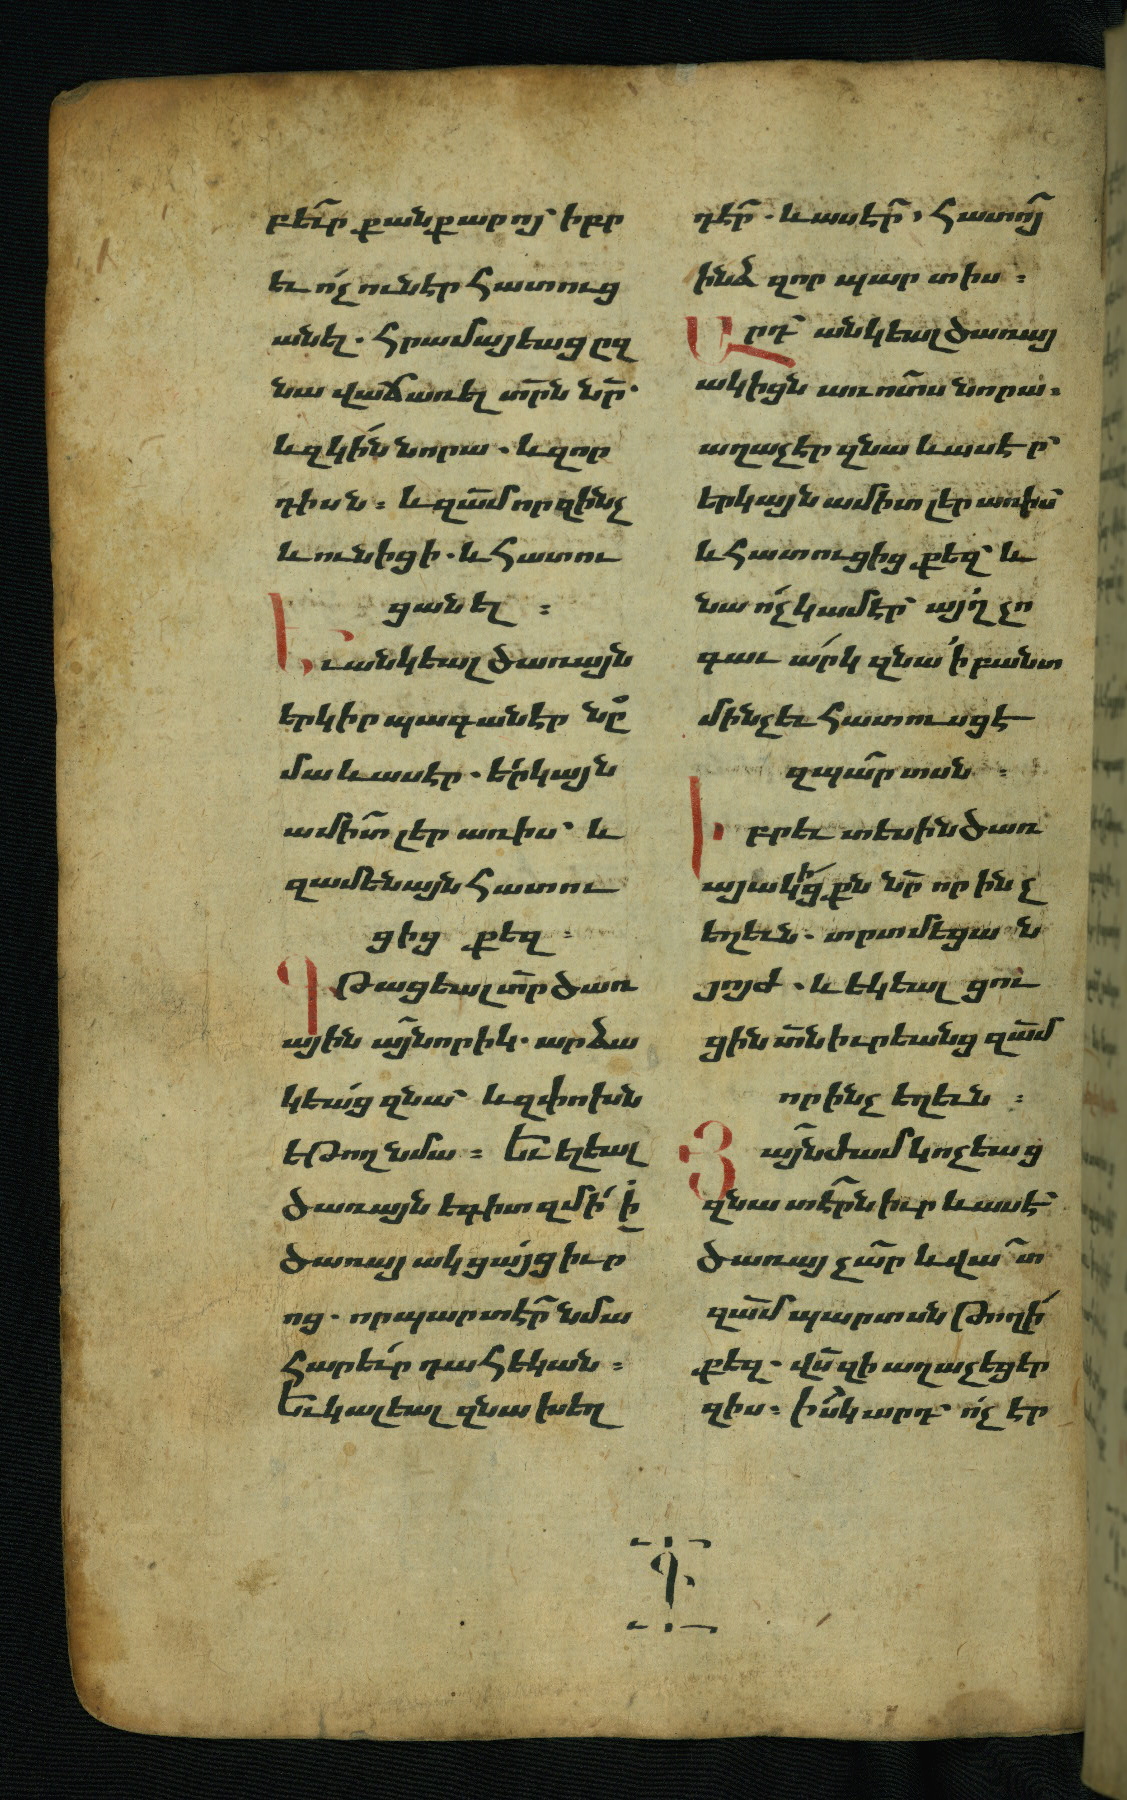 բեւ̃ր քանքարոյ՝ իբր
եւ ո՛չ ունէր հատուց
անել. հրամայեաց ըզ
նա վաճառել տր̃ն նր̃.
և զկին նորա. և զոր
դիսն։ և զա̃մ որ զինչ
և ունիցի. և հատու
ցանել։
Եւ անկեալ ծառայն
երկիր պագանէր նը̊
մա և ասէր. ե՛րկայն
ամի̃տ լեր առիս՝ և
զամենայն հատու
ցից քեզ։
Գթացեալ տր̃ ծառ
ային այ̃նորիկ. արձա
կեա՛ց զնա՝ և զփոխն
եթող նմա։ Եւ ելեալ
ծառայն եգիտ զմի՛ ի
ծառայակցա՛յց իւր
ոց. որ պարտէր̃ նմա
հարեւ՛ր դահեկան։
Եւ կալեալ զնա խեղ
դէր̃. և ասէր̃, հատո՛յ̃
ինձ զոր պարտիս։
Արդ՝ անկեալ ծառայ
ակիցն առ ոտ̃ս նորա։
աղաչէր զնա և ասէր՝
երկայնամիտ լեր առիս՝
և հատուցից քեզ՝ և
նա ո՛չ կամէր՝ այլ չո
գաւ ա՛րկ զնա ՛ի բանտ
մինչեւ հատուսցէ
զպա̃րտսն։
Իբրեւ տեսին ծառ
այակիցքն նր̃ որ ինչ
եղեւն. տրտմեցան
յոյժ. և եկեալ ցու
ցին տ̃ն իւրեանց զա̃մ
որ ինչ եղեւն։
Յայ̃նժամ կոչեաց
զնա տէր̃ն իւր և ասէ՝
ծառայ չա̃ր և վա̃տ
զա̃մ պարտսն թողի՛
քեզ. վս̃զի աղաչեցեր
զիս։ իսկ արդ՝ ո՛չ էր
Գ